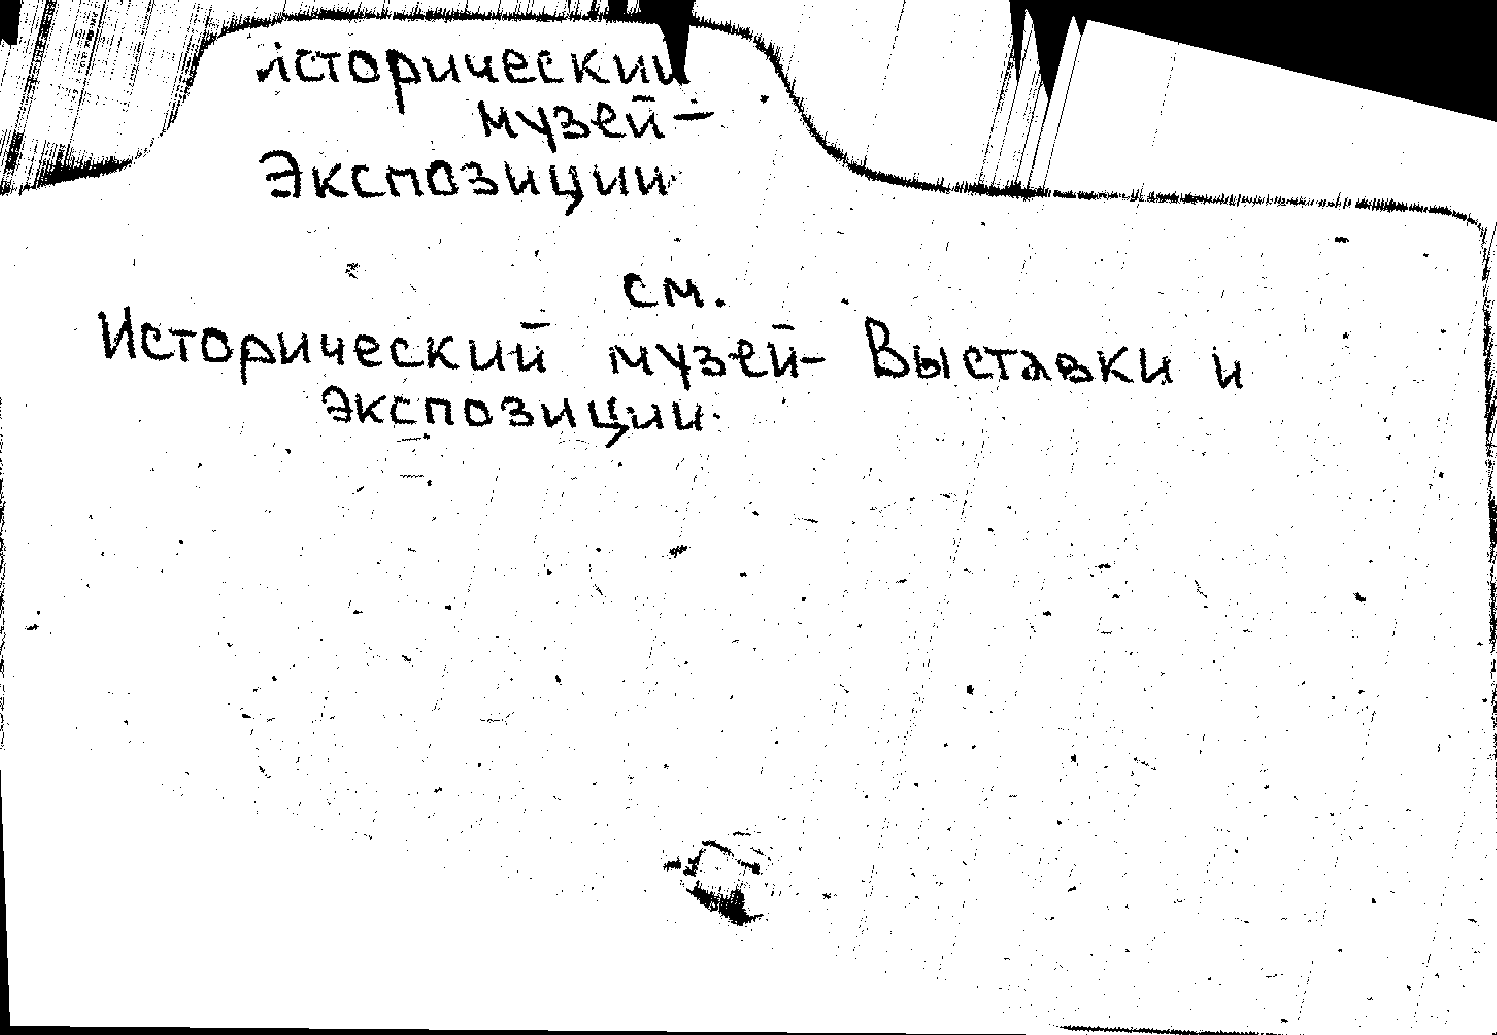 исторический
музей-
Экспозиции
см.
Исторический музей- Выставки и
экспозиции.